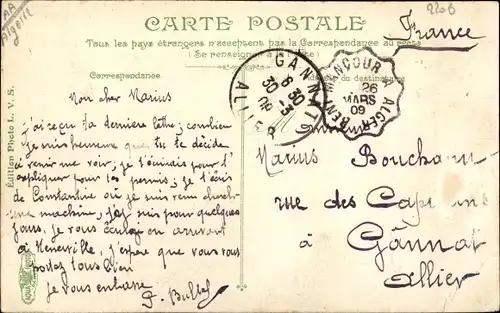 AA
Algérie
2206
CARTE POSTALE
France
Tous les pays étrangers n'acceptent pas la Correspondance au recto
(Se renseigner à la Poste)
Correspondance
Adresse du destinataire
GANNAT
6 30
30 -3
09
ALLIER
BENI MANCOUR A ALGER
26
MARS
09
Mon cher Marius
j'ai reçu ta dernière lettre; combien
je suis heureuse que tu te décide
à venir me voir; je t'écrivais pour t'
expliquer pour les permis; je t'écris
de Constantine où je suis venu cherch
une machine, j'ai suis pour quelques
jours. je vous écrirai en arrivant
à Menerville. j'espère que vous vous
portez tous bien
je vous embrasse
Monsieur
Marius
rue des Capucins
à
Gannat
Allier
Édition Photo L. V. S.